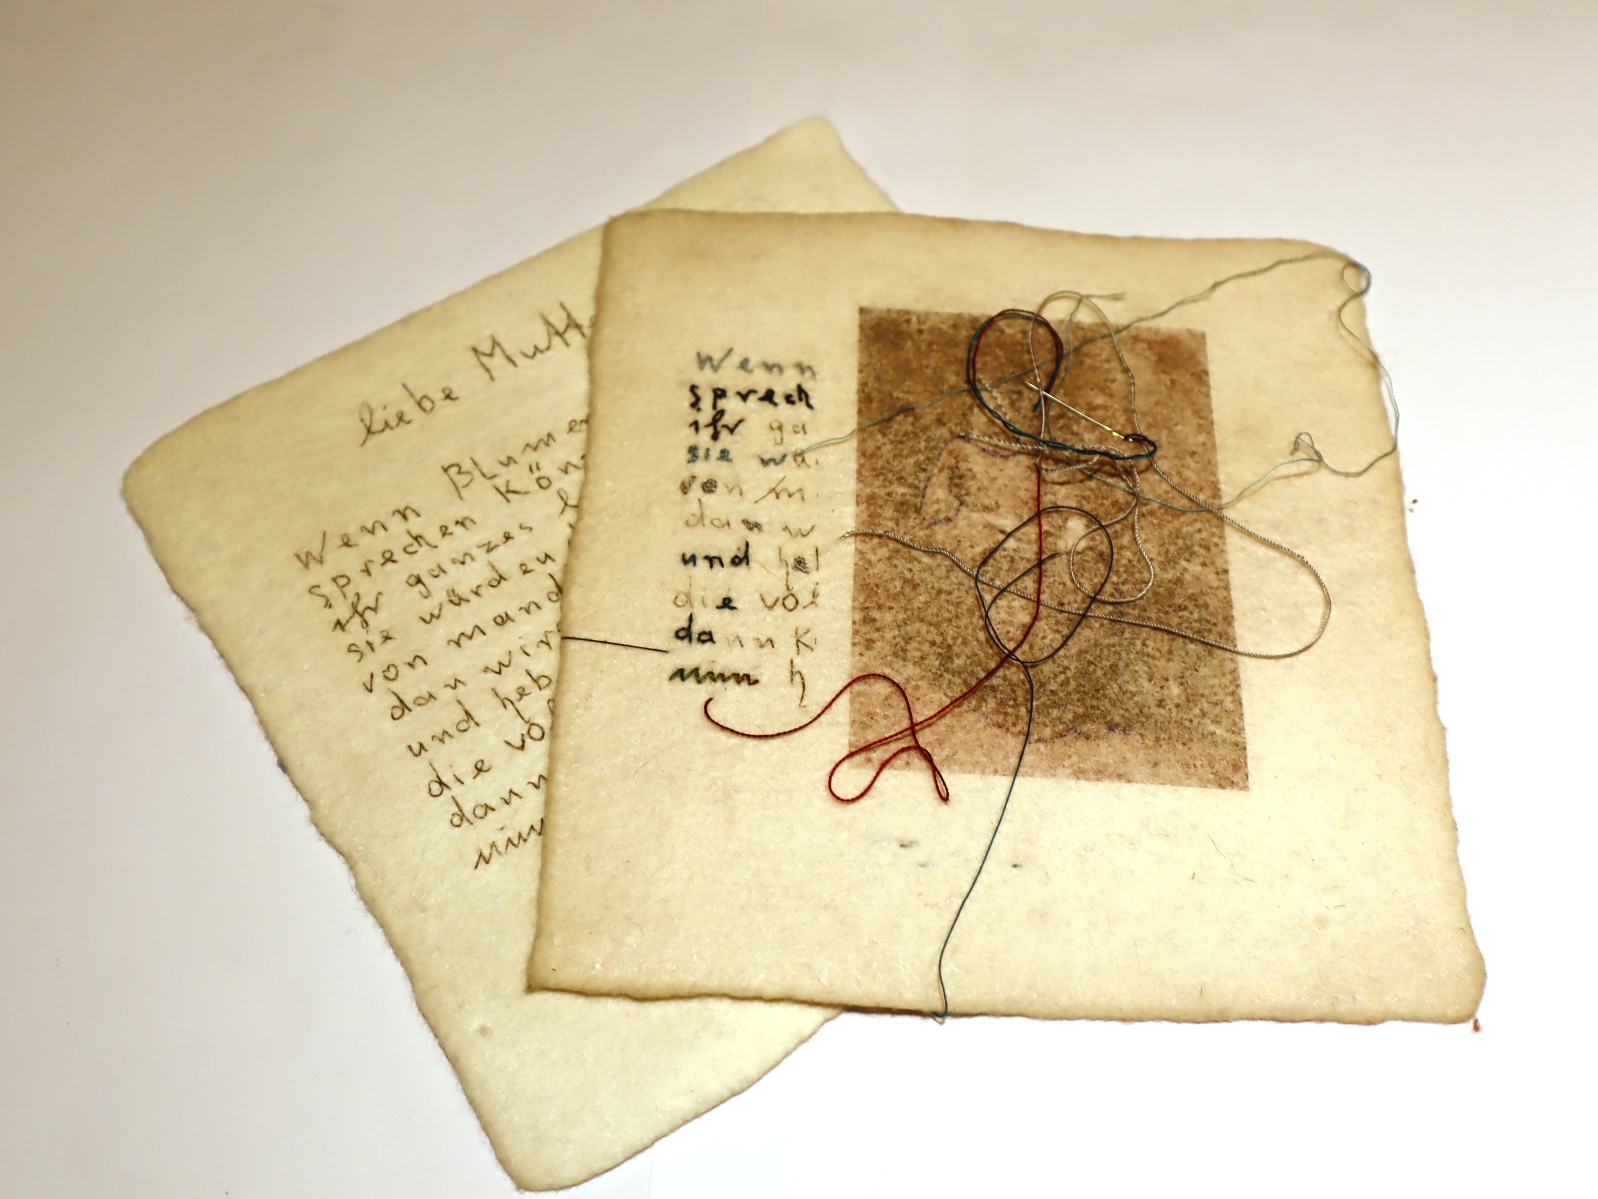 liebe Mutt
Wenn Blumen
sprechen kön
ihr ganzes l
sie würden
von mand
dan wir
und heb
die vö
dann
nun
Wenn
sprech
ihr ga
sie wü
von m
dan w
und heb
die völ
dann k
nun h